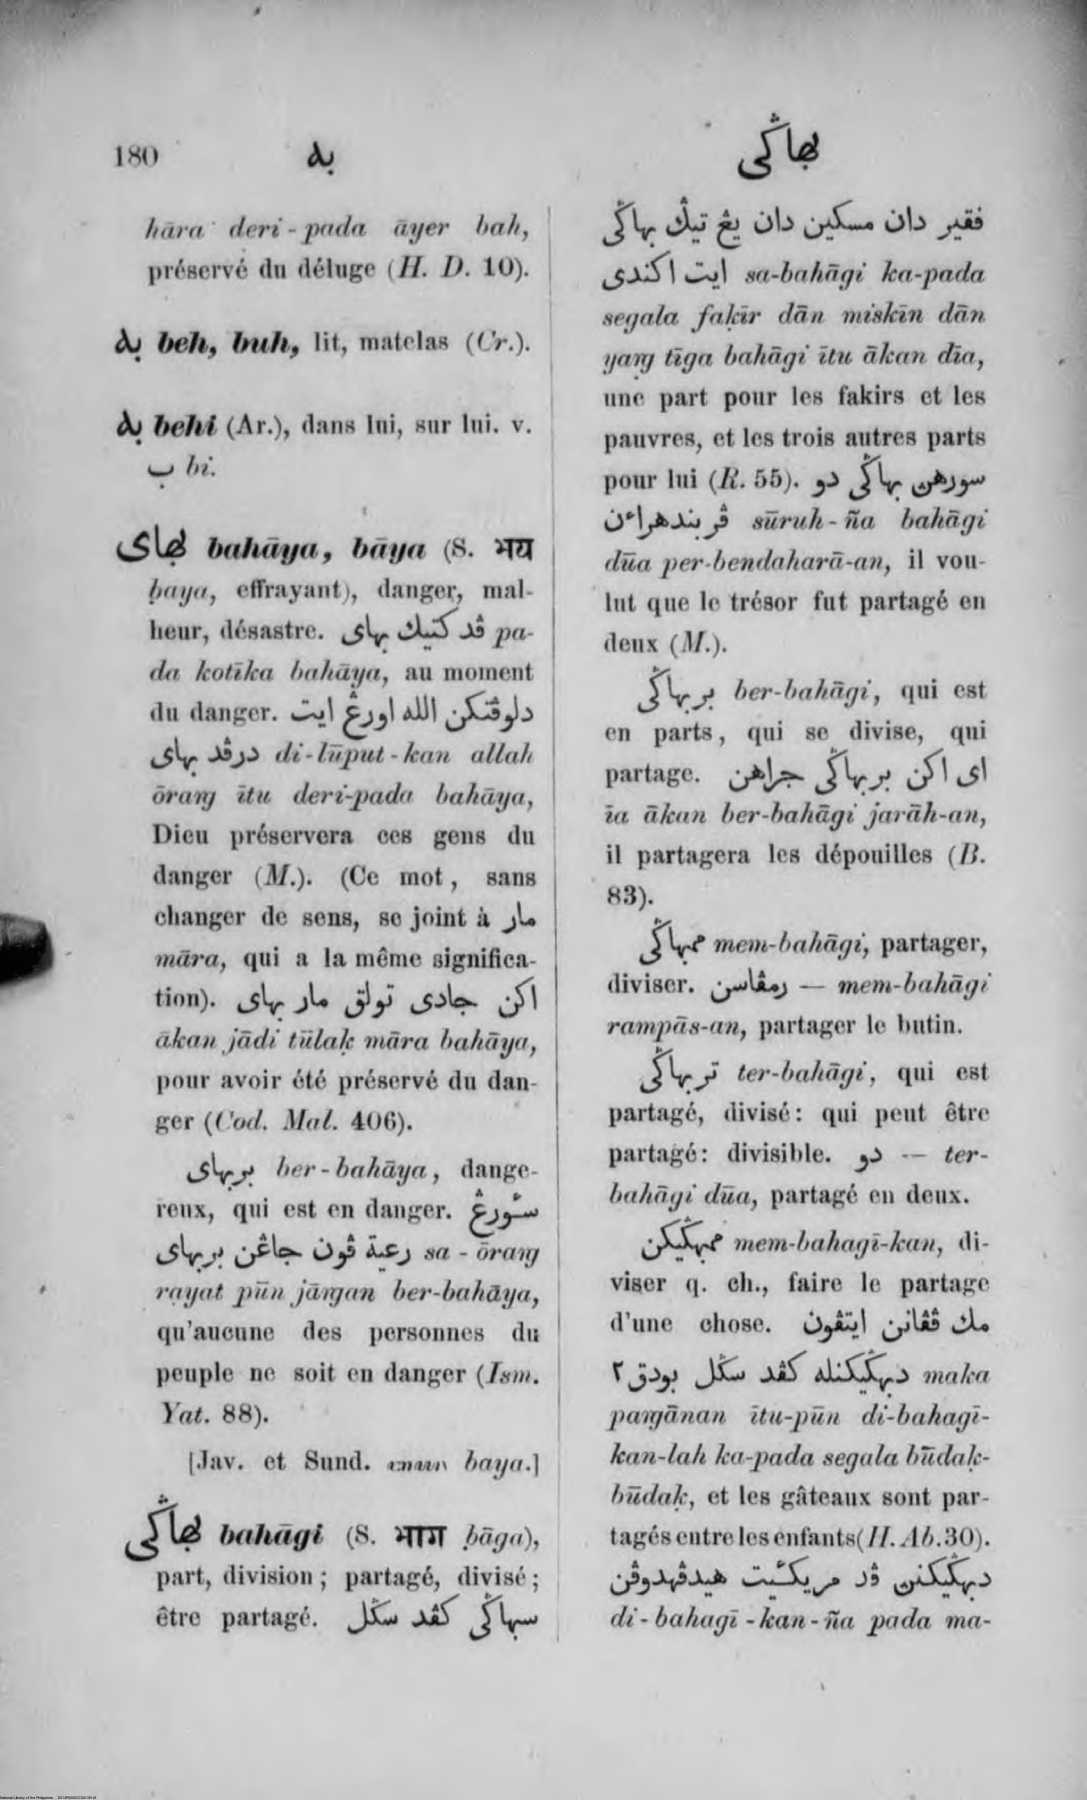 180
به
بهاڬي
hāra deri-pada āyer bah,
préservé du déluge (H. D. 10).
به beh, buh, lit, matelas (Cr.).
به behi (Ar.), dans lui, sur lui. v.
ب bi.
بهاى bahāya, bāya (S. भय
ḅaya, effrayant), danger, mal-
heur, désastre. ڤد كتيك بهاى pa-
da kotīka bahāya, au moment
du danger. دلوڤتكن الله اورڠ ايت
درڤد بهاى di-lūput-kan allah
ōraṅg ītu deri-pada bahāya,
Dieu préservera ces gens du
danger (M.). (Ce mot, sans
changer de sens, se joint à مار
māra, qui a la même significa-
tion). اكن جادى تولق مار بهاى
ākan jādi tūlaḳ māra bahāya,
pour avoir été préservé du dan-
ger (Cod. Mal. 406).
بربهاى ber-bahāya, dange-
reux, qui est en danger. سئورڠ
رعية ڤون جاڠن بربهاى sa-ōraṅg
rạyat pūn jāṅgan ber-bahāya,
qu'aucune des personnes du
peuple ne soit en danger (Ism.
Yat. 88).
[Jav. et Sund. baya.]
بهاڬي bahāgi (S. भाग ḅāga),
part, division; partagé, divisé;
être partagé. سبهاڬي كڤد سڬل
فقير دان مسكين دان يڠ تيڬ بهاڬي
ايت اكندى sa-bahāgi ka-pada
segala faḳīr dān miskīn dān
yaṅg tīga bahāgi ītu ākan dīa,
une part pour les fakirs et les
pauvres, et les trois autres parts
pour lui (R. 55). سورهن بهاڬي دو
ڤربندهراءن sūruh-ña bahāgi
dūa per-bendaharā-an, il vou-
lut que le trésor fut partagé en
deux (M.).
بربهاڬي ber-bahāgi, qui est
en parts, qui se divise, qui
partage. اى اكن بربهاڬي جراهن
īa ākan ber-bahāgi jarāh-an,
il partagera les dépouilles (B.
83).
ممبهاڬي mem-bahāgi, partager,
diviser. رمڤاسن — mem-bahāgi
rampās-an, partager le butin.
تربهاڬي ter-bahāgi, qui est
partagé, divisé: qui peut être
partagé: divisible. دو — ter-
bahāgi dūa, partagé en deux.
ممبهڬيكن mem-bahagī-kan, di-
viser q. ch., faire le partage
d'une chose. مك ڤڠانن ايتڤون
دبهڬيكنله كڤد سڬل بودق٢ maka
paṅgānan ītu-pūn di-bahagī-
kan-lah ka-pada segala būdaḳ-
būdaḳ, et les gâteaux sont par-
tagés entre les enfants (H. Ab. 30).
دبهڬيكنن ڤد مريكئيت هيدڤهدوڤن
di-bahagī-kan-ña pada ma-